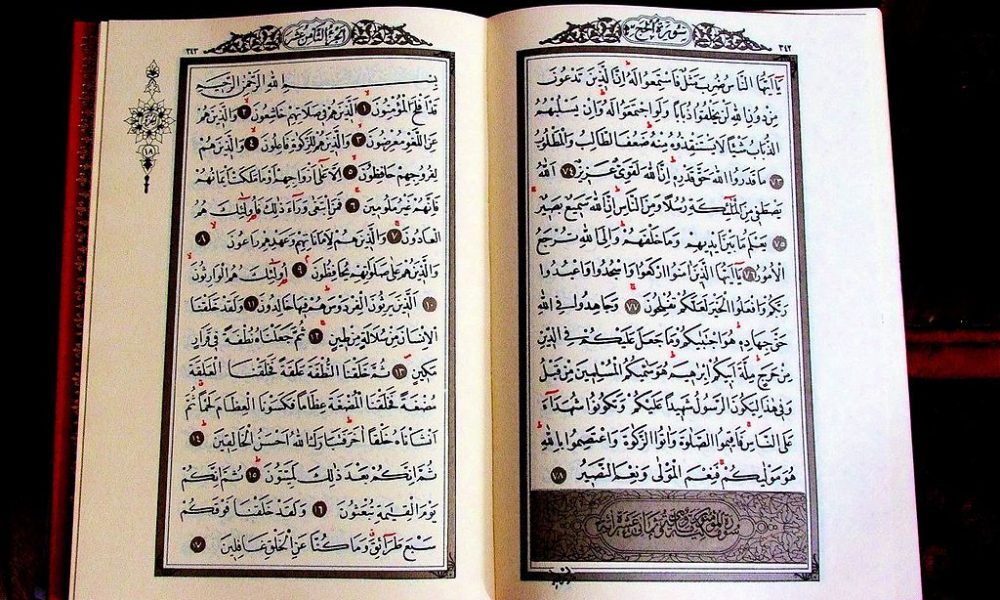 ٣٤٢
سورة الحج
يَا أَيُّهَا النَّاسُ ضُرِبَ مَثَلٌ فَاسْتَمِعُوا لَهُ إِنَّ الَّذِينَ تَدْعُونَ
مِنْ دُونِ اللّٰهِ لَنْ يَخْلُقُوا ذُبَابًا وَلَوِ اجْتَمَعُوا لَهُ وَإِنْ يَسْلُبْهُمُ
الذُّبَابُ شَيْئًا لَا يَسْتَنْقِذُوهُ مِنْهُ ضَعُفَ الطَّالِبُ وَالْمَطْلُوبُ
٧٣ مَا قَدَرُوا اللّٰهَ حَقَّ قَدْرِهِ إِنَّ اللّٰهَ لَقَوِيٌّ عَزِيزٌ ٧٤ اَللّٰهُ
يَصْطَفِي مِنَ الْمَلٰئِكَةِ رُسُلًا وَمِنَ النَّاسِ إِنَّ اللّٰهَ سَمِيعٌ بَصِيرٌ
٧٥ يَعْلَمُ مَا بَيْنَ أَيْدِيهِمْ وَمَا خَلْفَهُمْ وَإِلَى اللّٰهِ تُرْجَعُ
الْأُمُورُ ٧٦ يَا أَيُّهَا الَّذِينَ آمَنُوا ارْكَعُوا وَاسْجُدُوا وَاعْبُدُوا
رَبَّكُمْ وَافْعَلُوا الْخَيْرَ لَعَلَّكُمْ تُفْلِحُونَ ٧٧ وَجَاهِدُوا فِي اللّٰهِ
حَقَّ جِهَادِهِ هُوَ اجْتَبٰيكُمْ وَمَا جَعَلَ عَلَيْكُمْ فِي الدِّينِ
مِنْ حَرَجٍ مِلَّةَ أَبِيكُمْ إِبْرٰهِيمَ هُوَ سَمّٰيكُمُ الْمُسْلِمِينَ مِنْ قَبْلُ
وَفِي هٰذَا لِيَكُونَ الرَّسُولُ شَهِيدًا عَلَيْكُمْ وَتَكُونُوا شُهَدَاءَ
عَلَى النَّاسِ فَأَقِيمُوا الصَّلٰوةَ وَآتُوا الزَّكٰوةَ وَاعْتَصِمُوا بِاللّٰهِ
هُوَ مَوْلٰيكُمْ فَنِعْمَ الْمَوْلٰى وَنِعْمَ النَّصِيرُ ٧٨
٣٤٣
الجزء الثامن عشر
بِسْمِ اللّٰهِ الرَّحْمٰنِ الرَّحِيمِ
قَدْ أَفْلَحَ الْمُؤْمِنُونَ ١ الَّذِينَ هُمْ فِي صَلَاتِهِمْ خَاشِعُونَ ٢ وَالَّذِينَ هُمْ
عَنِ اللَّغْوِ مُعْرِضُونَ ٣ وَالَّذِينَ هُمْ لِلزَّكٰوةِ فَاعِلُونَ ٤ وَالَّذِينَ هُمْ
لِفُرُوجِهِمْ حَافِظُونَ ٥ إِلَّا عَلٰى أَزْوَاجِهِمْ أَوْ مَا مَلَكَتْ أَيْمَانُهُمْ
فَإِنَّهُمْ غَيْرُ مَلُومِينَ ٦ فَمَنِ ابْتَغٰى وَرَاءَ ذٰلِكَ فَأُولٰئِكَ هُمُ
الْعَادُونَ ٧ وَالَّذِينَ هُمْ لِأَمَانَاتِهِمْ وَعَهْدِهِمْ رَاعُونَ ٨
وَالَّذِينَ هُمْ عَلٰى صَلَوَاتِهِمْ يُحَافِظُونَ ٩ أُولٰئِكَ هُمُ الْوَارِثُونَ
١٠ الَّذِينَ يَرِثُونَ الْفِرْدَوْسَ هُمْ فِيهَا خَالِدُونَ ١١ وَلَقَدْ خَلَقْنَا
الْإِنْسَانَ مِنْ سُلَالَةٍ مِنْ طِينٍ ١٢ ثُمَّ جَعَلْنَاهُ نُطْفَةً فِي قَرَارٍ
مَكِينٍ ١٣ ثُمَّ خَلَقْنَا النُّطْفَةَ عَلَقَةً فَخَلَقْنَا الْعَلَقَةَ
مُضْغَةً فَخَلَقْنَا الْمُضْغَةَ عِظَامًا فَكَسَوْنَا الْعِظَامَ لَحْمًا ثُمَّ
أَنْشَأْنَاهُ خَلْقًا آخَرَ فَتَبَارَكَ اللّٰهُ أَحْسَنُ الْخَالِقِينَ ١٤
ثُمَّ إِنَّكُمْ بَعْدَ ذٰلِكَ لَمَيِّتُونَ ١٥ ثُمَّ إِنَّكُمْ
يَوْمَ الْقِيٰمَةِ تُبْعَثُونَ ١٦ وَلَقَدْ خَلَقْنَا فَوْقَكُمْ
سَبْعَ طَرَائِقَ وَمَا كُنَّا عَنِ الْخَلْقِ غَافِلِينَ ١٧
١٨